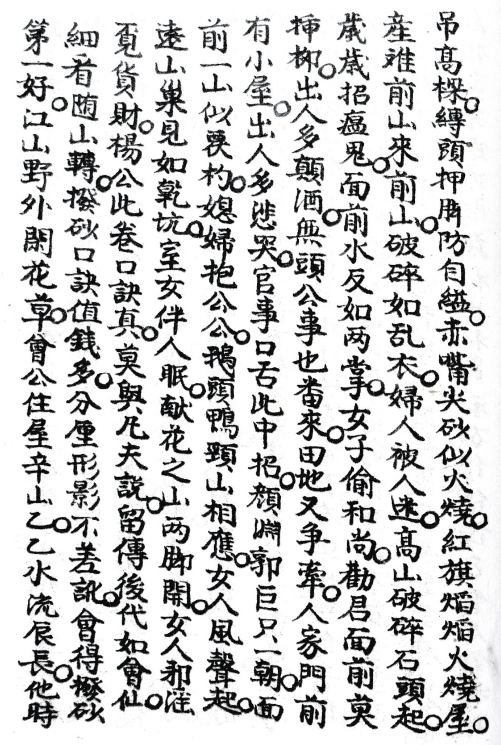 吊高樑。縛頭押脚防自縊。赤嘴尖砂似火燒。紅旗焰焰火燒屋。
産难前山來。前山破碎如乱衣。婦人被人迷。高山破碎石頭起。
歲歲招瘟鬼。面前水反如两掌。女子偷和尚。勸君面前莫
揷柳。出人多顛酒。無頭公事也畨來。田地又争牽。人家門前
有小屋。出人多悲哭。官事口舌此中招。顔淵郭巨只一朝。面
前一山似茭杓。媳婦抱公公。鵝頭鴨頸山相應。女人風聲起。
遠山巢見如乾坑。室女伴人眠。献花之山两脚開。女人邪淫
覔貨財。楊公此卷口訣真。莫與凡夫說。留傳後代如會仙。
細看随山轉。撥砂口訣值錢多。分厘形影不差訛。會得撥砂
第一好。江山野外閑花草。曾公住屋辛山乙。乙水流辰長。他時